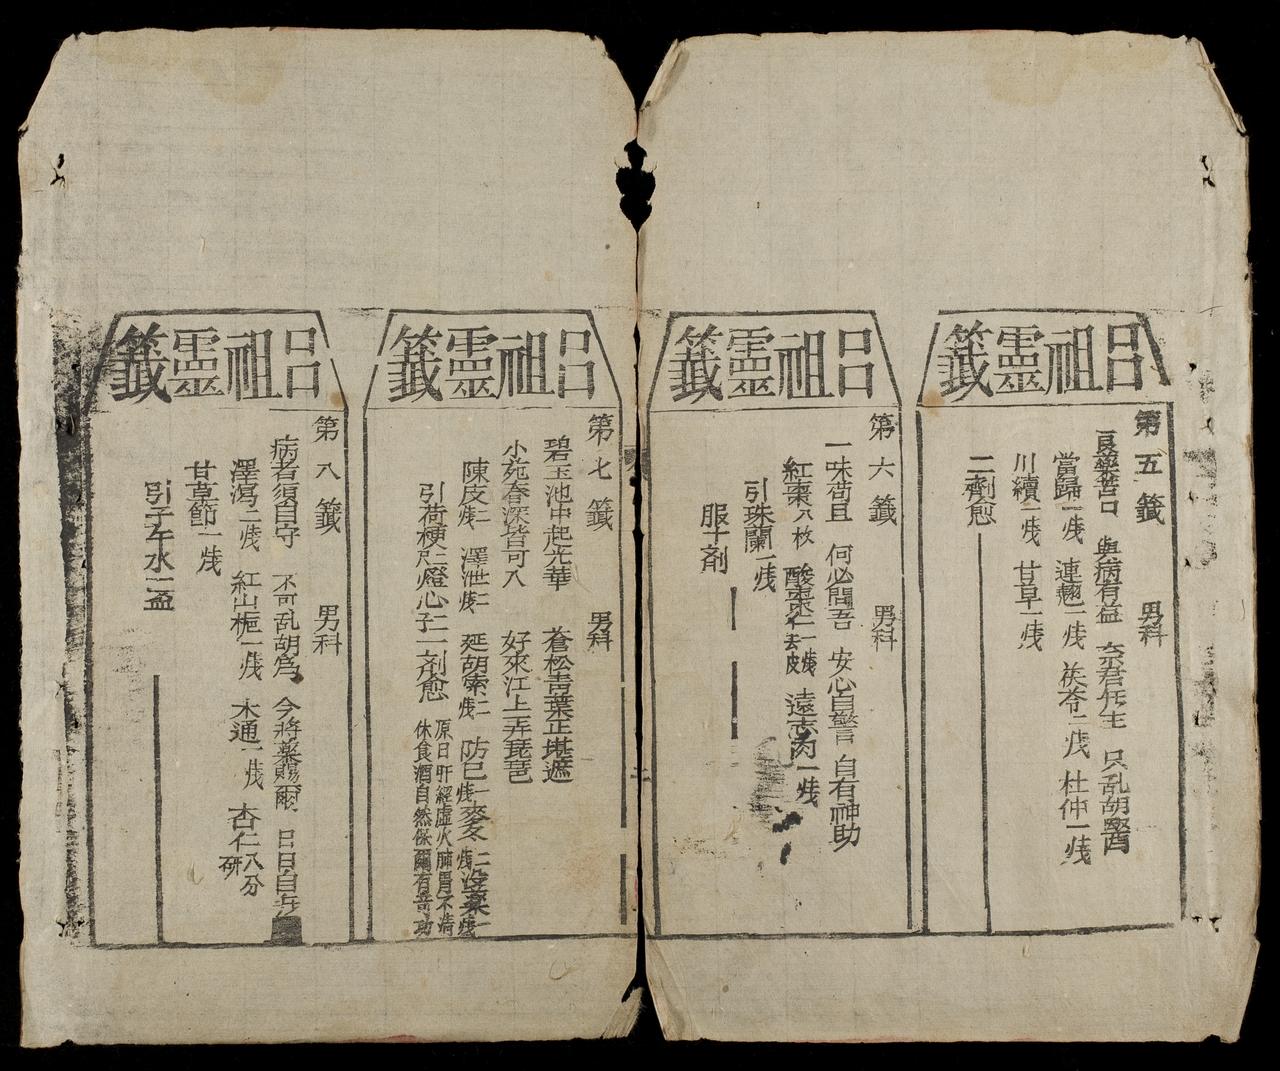 呂祖靈籤
第五籤 男科
良藥苦口 與病有益 奈君任主 只乱胡醫
當歸一戔 連翹一戔 茯苓二戔 杜仲一戔
川續一戔 甘草一戔
二劑愈
呂祖靈籤
第六籤 男科
一味苟且 何必問吾 安心自警 自有神助
紅棗八枚 酸棗仁一戔去皮 遠志肉一戔
引珠蘭一戔
服十剤
呂祖靈籤
第七籤 男科
碧玉池中起光華 蒼松青葉正堪遮
小苑春深皆可入 好來江上弄琵琶
陳皮二戔 澤泄二戔 延胡索二戔 防巳一戔 麥 二戔 沒藥一戔
引荷梗尺二燈心子二 二剤愈
原日肝經虛火肺胃不清
休食酒自然保爾有奇功
呂祖靈籤
第八籤 男科
病者須自守 不可乱胡為 今將藥賜爾 日日自
澤瀉二戔 紅山梔一戔 木通一戔 杏仁八分研
甘草節一戔
引子午水一盃